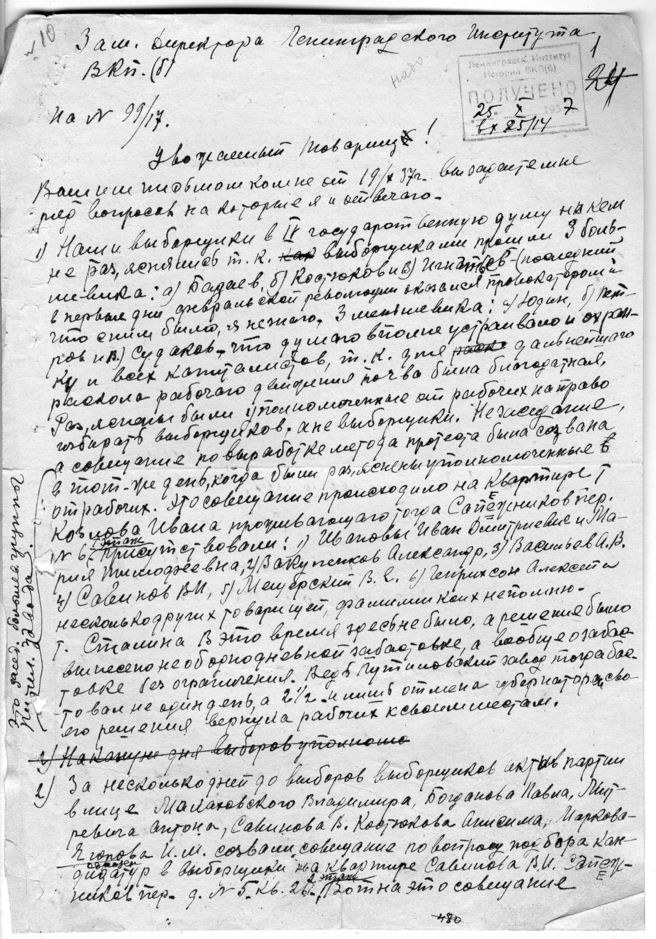 10
Зам. Директора Ленинградского Института
ВКП. (б)
надо
1
24
Ленинградск. Институт
Истории ВКП(б)
ПОЛУЧЕНО
25 X 7
вх 25/14
На № 99/17.
Уважаемый товарищ!
Вашим письмом ко мне от 19/X 37г. вы задаете мне
ряд вопросов на которые я и отвечаю.
1) Наши выборщики в IV государственную думу ни кем
не раз,яснялись т. к. как выборщиками прошли 3 боль-
шевика: а) Бадаев, б) Костюков и в) Игнатьев (последний
в первые дни февральской революции оказался провокатором и
что с ним было, я не знаю. 3 меньшевика: а) Юдин, б) Пет-
ров и в) Судаков, что думаю вполне устраивало и охран-
ку и всех капиталистов, т. к. для дальнейшего
раскола рабочего движения почва была благодатная,
Раз,яснены были уполномоченные от рабочих на право
избирать выборщиков, а не выборщики. Не заседание,
а совещание по выработке метода протеста была созвана
в тот-же день, когда были раз,яснены уполномоченные
от рабочих. Это совещание происходило на квартире т
Козлова Ивана проживающего тогда Сапер.
№ 6, этаж Присутствовали: 1) Ивановы Иван Дмитриевич и Ма-
рия Тимофеевна, 2) Закупенков Александр, 3) Васильев А.В.
4) Савинов В.И, 5) Мещерский В. Е. 6) Генриксон Алексей и
несколько других товарищей, фамилии коих непомню.
Т. Сталина в это время здесь не было, а решение было
вынесено не об однодневной забастовке, а вообще о забас-
товке без ограничения. Ведь Путиловский завод тогда бас-
товал не один день, а 2 1/2 и лишь отмена губернатором сво-
его решения вернула рабочих к своим местам.
2) Накануне дня выборов уполномо
2) За несколько дней до выборов выборщиков актив партии
в лице Малаховского Владимира, Богданова Павла, Мит-
ревича Антона, Савинова В. Костюкова Анисима, Маркова-
Ягнова И.М. созвали совещание по вопросу подбора кан-
дидатур в выборщики на квартире Савинова В.И.
ников пер. д. № 5. кв. 26. 2 этаж Вот на это совещание
480